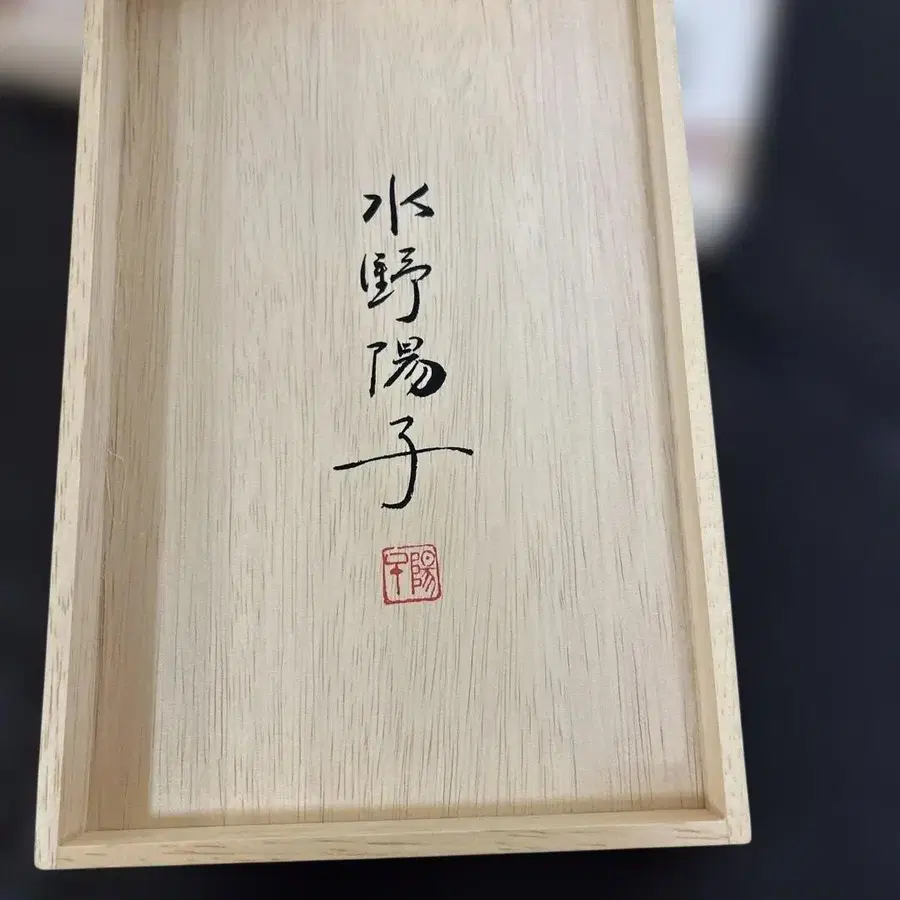 水野陽子
陽子